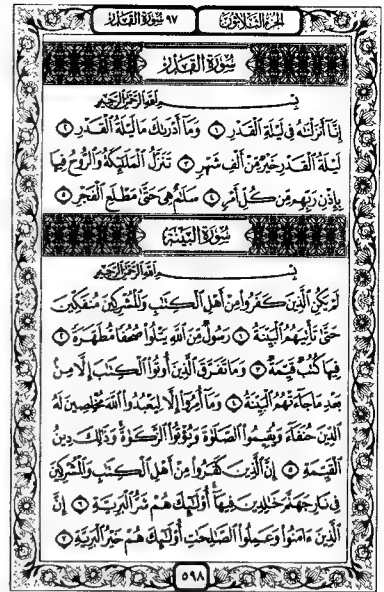 الجزء الثلاثون
٩٧ سورة القدر
سُورَةُ القَدْرِ
بِسْمِ اللَّهِ الرَّحْمَٰنِ الرَّحِيمِ
إِنَّا أَنزَلْنَٰهُ فِى لَيْلَةِ الْقَدْرِ ١ وَمَا أَدْرَىٰكَ مَا لَيْلَةُ الْقَدْرِ ٢
لَيْلَةُ الْقَدْرِ خَيْرٌ مِّنْ أَلْفِ شَهْرٍ ٣ تَنَزَّلُ الْمَلَٰٓئِكَةُ وَالرُّوحُ فِيهَا
بِإِذْنِ رَبِّهِم مِّن كُلِّ أَمْرٍ ٤ سَلَٰمٌ هِىَ حَتَّىٰ مَطْلَعِ الْفَجْرِ ٥
سُورَةُ البَيِّنَةِ
بِسْمِ اللَّهِ الرَّحْمَٰنِ الرَّحِيمِ
لَمْ يَكُنِ الَّذِينَ كَفَرُوا مِنْ أَهْلِ الْكِتَٰبِ وَالْمُشْرِكِينَ مُنفَكِّينَ
حَتَّىٰ تَأْتِيَهُمُ الْبَيِّنَةُ ١ رَسُولٌ مِّنَ اللَّهِ يَتْلُوا صُحُفًا مُّطَهَّرَةً ٢
فِيهَا كُتُبٌ قَيِّمَةٌ ٣ وَمَا تَفَرَّقَ الَّذِينَ أُوتُوا الْكِتَٰبَ إِلَّا مِنْ
بَعْدِ مَا جَآءَتْهُمُ الْبَيِّنَةُ ٤ وَمَآ أُمِرُوٓا إِلَّا لِيَعْبُدُوا اللَّهَ مُخْلِصِينَ لَهُ
الدِّينَ حُنَفَآءَ وَيُقِيمُوا الصَّلَوٰةَ وَيُؤْتُوا الزَّكَوٰةَ وَذَٰلِكَ دِينُ
الْقَيِّمَةِ ٥ إِنَّ الَّذِينَ كَفَرُوا مِنْ أَهْلِ الْكِتَٰبِ وَالْمُشْرِكِينَ
فِى نَارِ جَهَنَّمَ خَٰلِدِينَ فِيهَآ أُولَٰٓئِكَ هُمْ شَرُّ الْبَرِيَّةِ ٦ إِنَّ
الَّذِينَ ءَامَنُوا وَعَمِلُوا الصَّٰلِحَٰتِ أُولَٰٓئِكَ هُمْ خَيْرُ الْبَرِيَّةِ ٧
٥٩٨